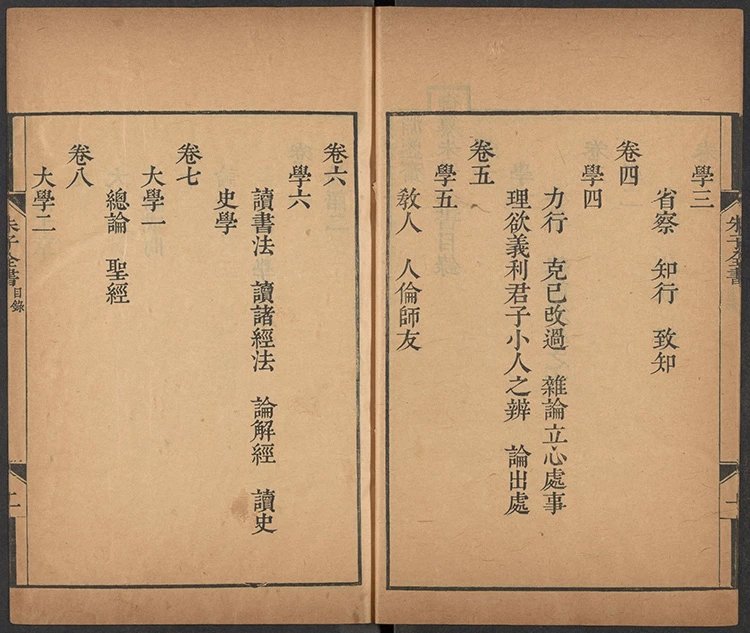 學三
省察　知行　致知
卷四
學四
力行　克己改過　雜論立心處事
理欲義利君子小人之辨　論出處
卷五
學五
敎人　人倫師友
卷六
學六
讀書法　讀諸經法　論解經　讀史
史學
卷七
大學一
總論　聖經
卷八
大學二
朱子全書
目錄